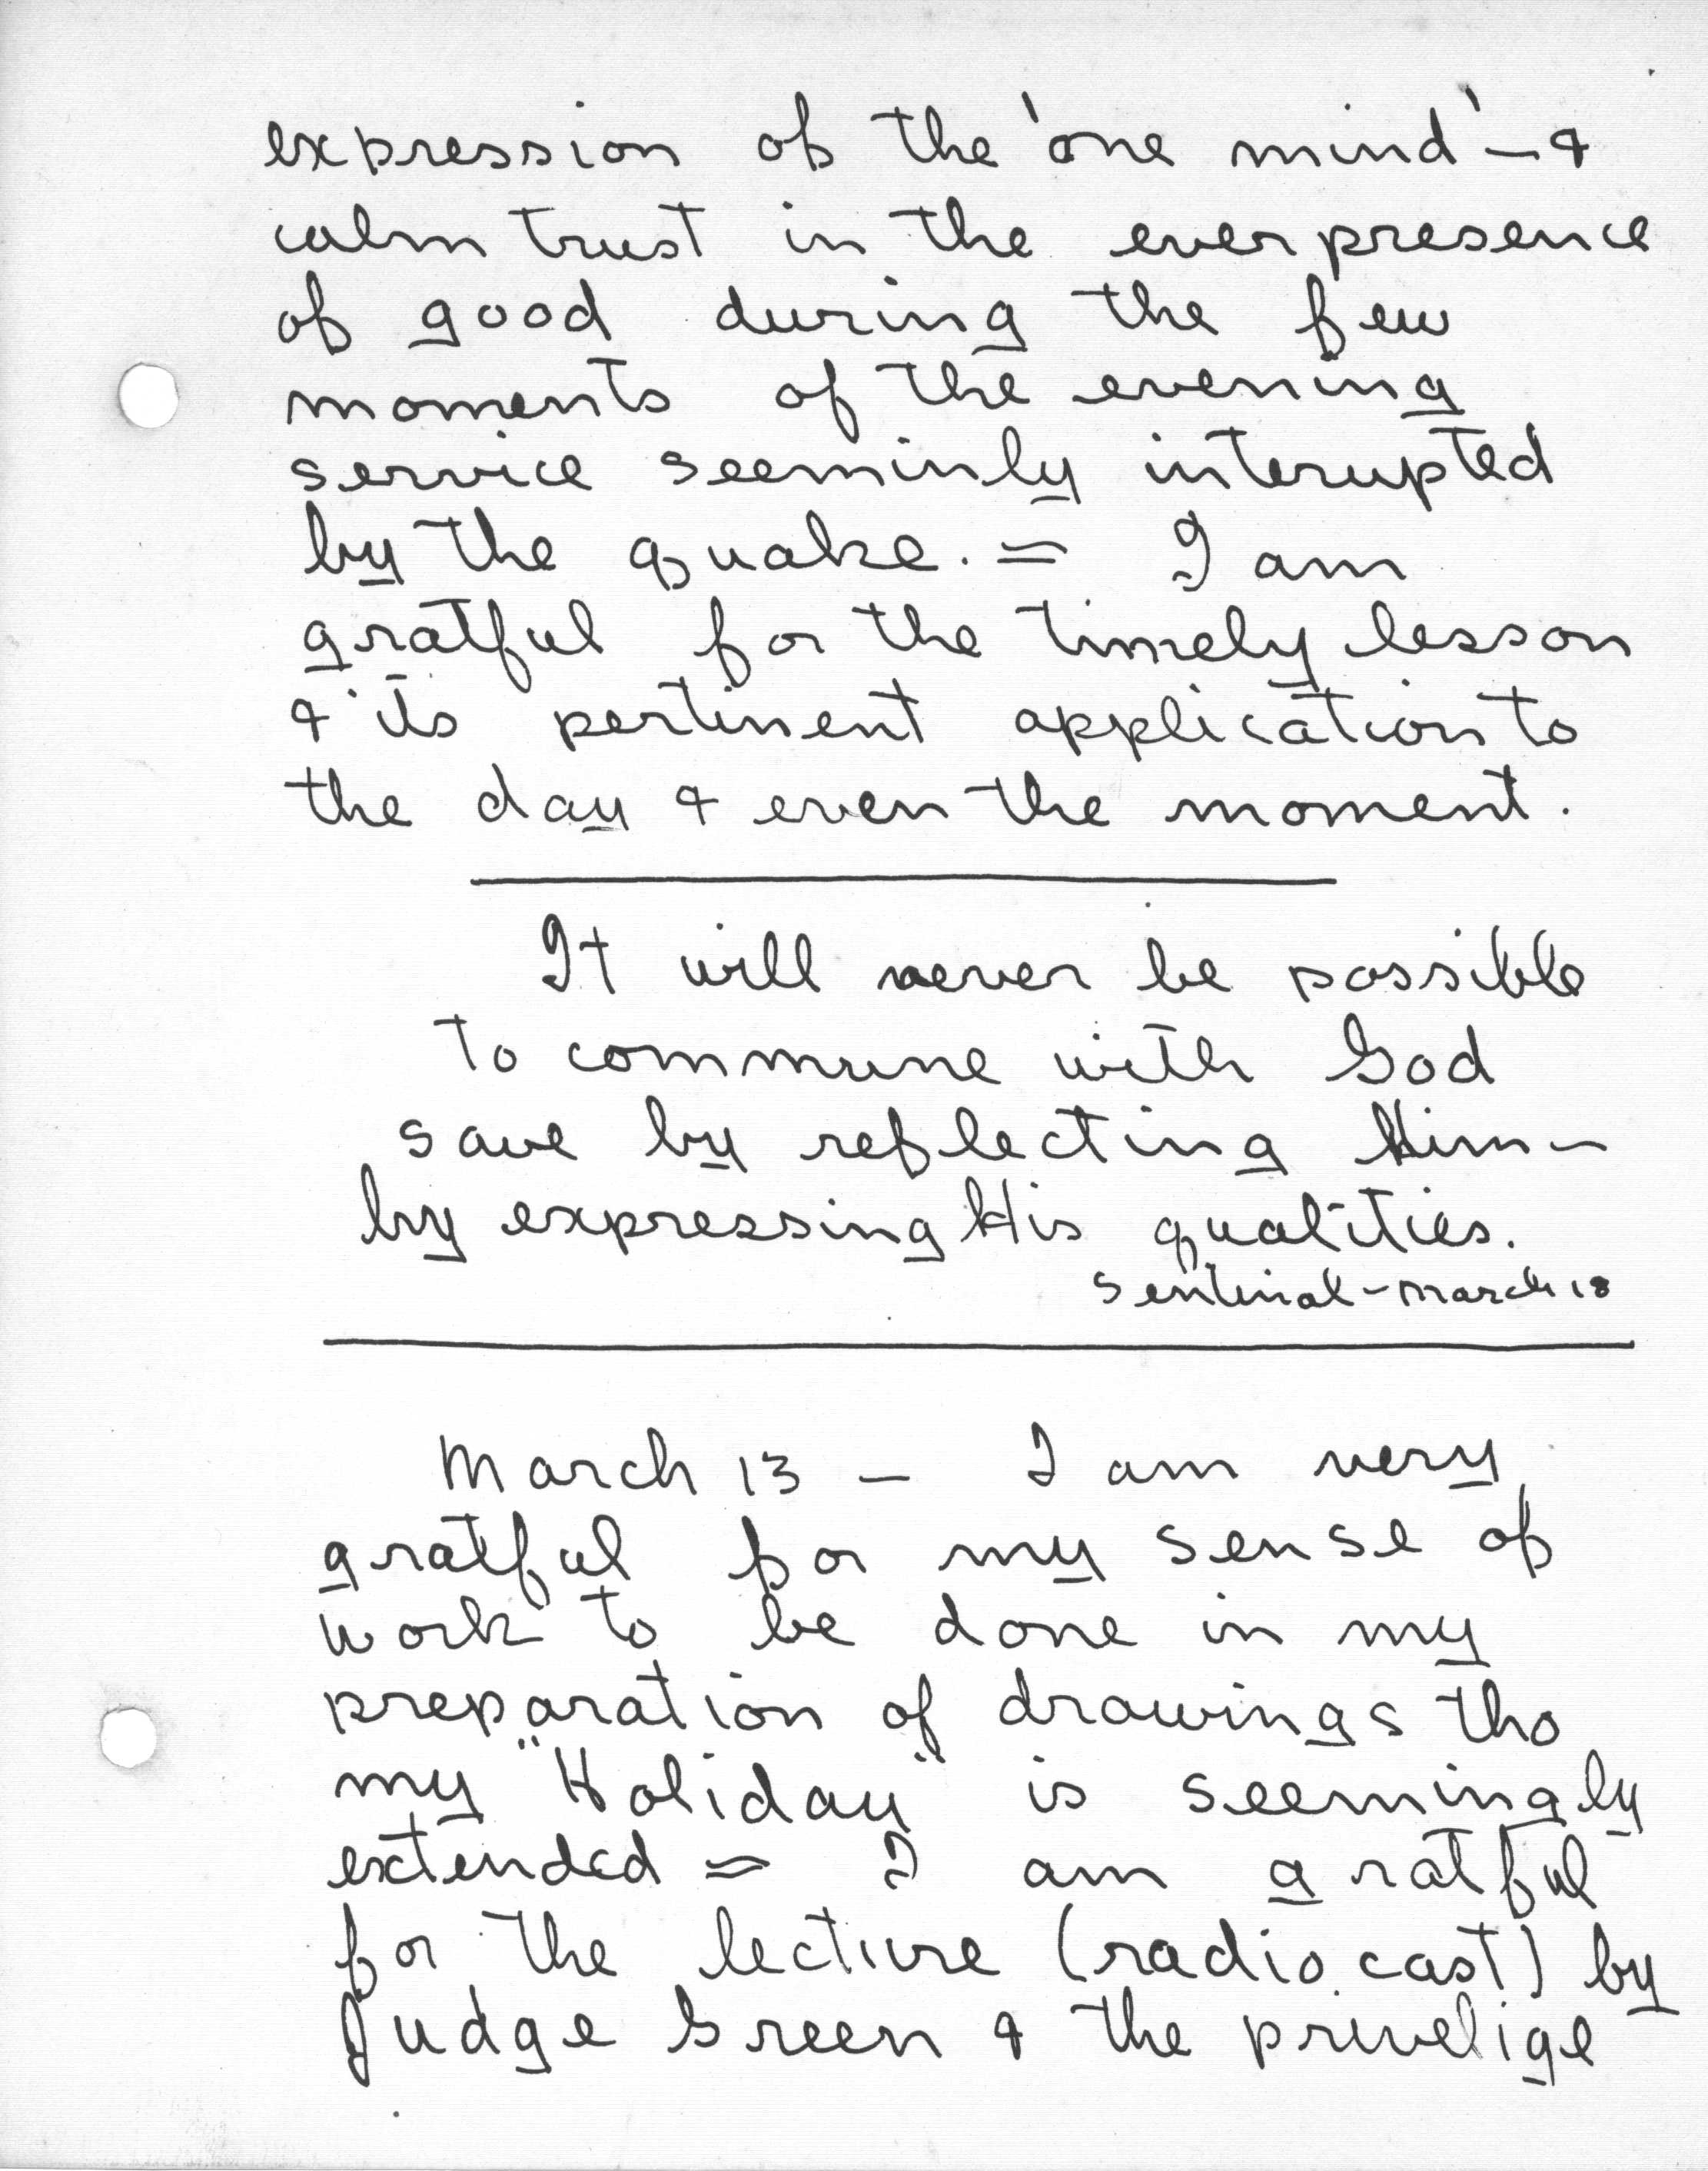 expression of the 'one mind' - &
calm trust in the ever presence
of good during the few
moments of the evening
service seeminly interupted
by the quake. = I am
gratful for the timely lesson
& its pertinent application to
the day & even the moment.
It will never be possible
to commune with God
save by reflecting Him -
by expressing His qualities.
Sentinal - March 18
March 13 - I am very
gratful for my sense of
work to be done in my
preparation of drawings tho
my "Holiday" is seemingly
extended = I am gratful
for the lecture (radio cast) by
Judge Green & the privelige